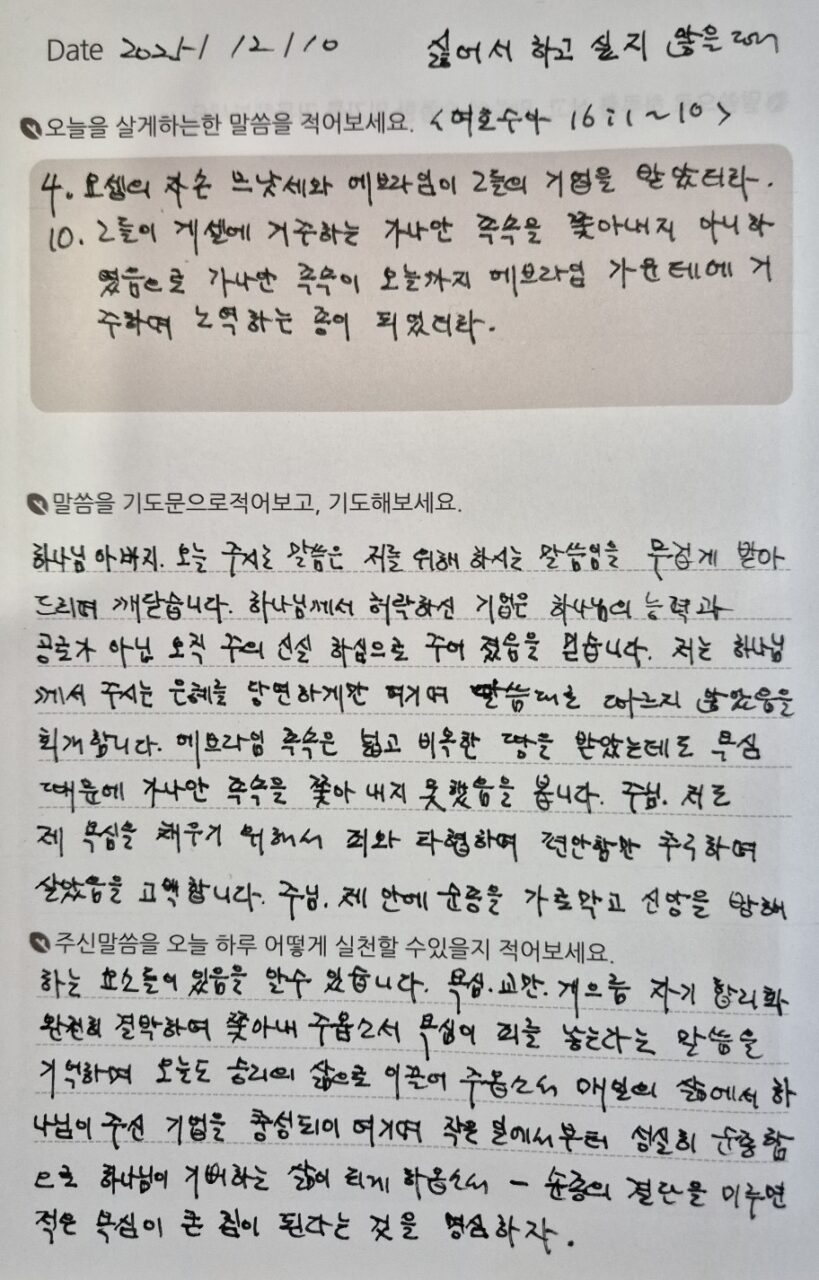 Date 2025/12/10 싫어서 하고 싶지 않을 때
오늘을 살게하는한 말씀을 적어보세요. <여호수아 16:1~10>
4. 요셉의 자손 므낫세와 에브라임이 그들의 기업을 받았더라.
10. 그들이 게셀에 거주하는 가나안 족속을 쫓아내지 아니하
였음으로 가나안 족속이 오늘까지 에브라임 가운데에 거
주하며 노역하는 종이 되었더라.
말씀을 기도문으로적어보고, 기도해보세요.
하나님 아버지. 오늘 주시는 말씀은 저를 위해 하시는 말씀임을 무겁게 받아
드리며 깨닫습니다. 하나님께서 허락하신 기업은 하나님의 능력과
공로가 아닌 오직 주의 신실 하심으로 주어 졌음을 믿습니다. 저는 하나님
께서 주시는 은혜를 당연하게만 여기며 말씀대로 따르지 않았음을
회개합니다. 에브라임 족속은 넓고 비옥한 땅을 받았는데도 욕심
때문에 가나안 족속을 쫓아 내지 못했음을 봅니다. 주님. 저도
제 욕심을 채우기 위해서 죄와 타협하며 편안함만 추구하며
살았음을 고백합니다. 주님. 제 안에 순종을 가로막고 신앙을 방해
주신말씀을 오늘 하루 어떻게 실천할 수있을지 적어보세요.
하는 요소들이 있음을 알수 있습니다. 욕심. 교만. 게으름 자기 합리화
완전히 결박하여 쫓아내 주옵소서 욕심이 죄를 낳는다는 말씀을
기억하며 오늘도 승리의 삶으로 이끌어 주옵소서 매일의 삶에서 하
나님이 주신 기업을 충성되이 여기며 작은 일에서부터 성실히 순종함
으로 하나님이 기뻐하는 삶이 되게 하옵소서 - 순종의 결단을 미루면
적은 욕심이 큰 짐이 된다는 것을 명심하자.